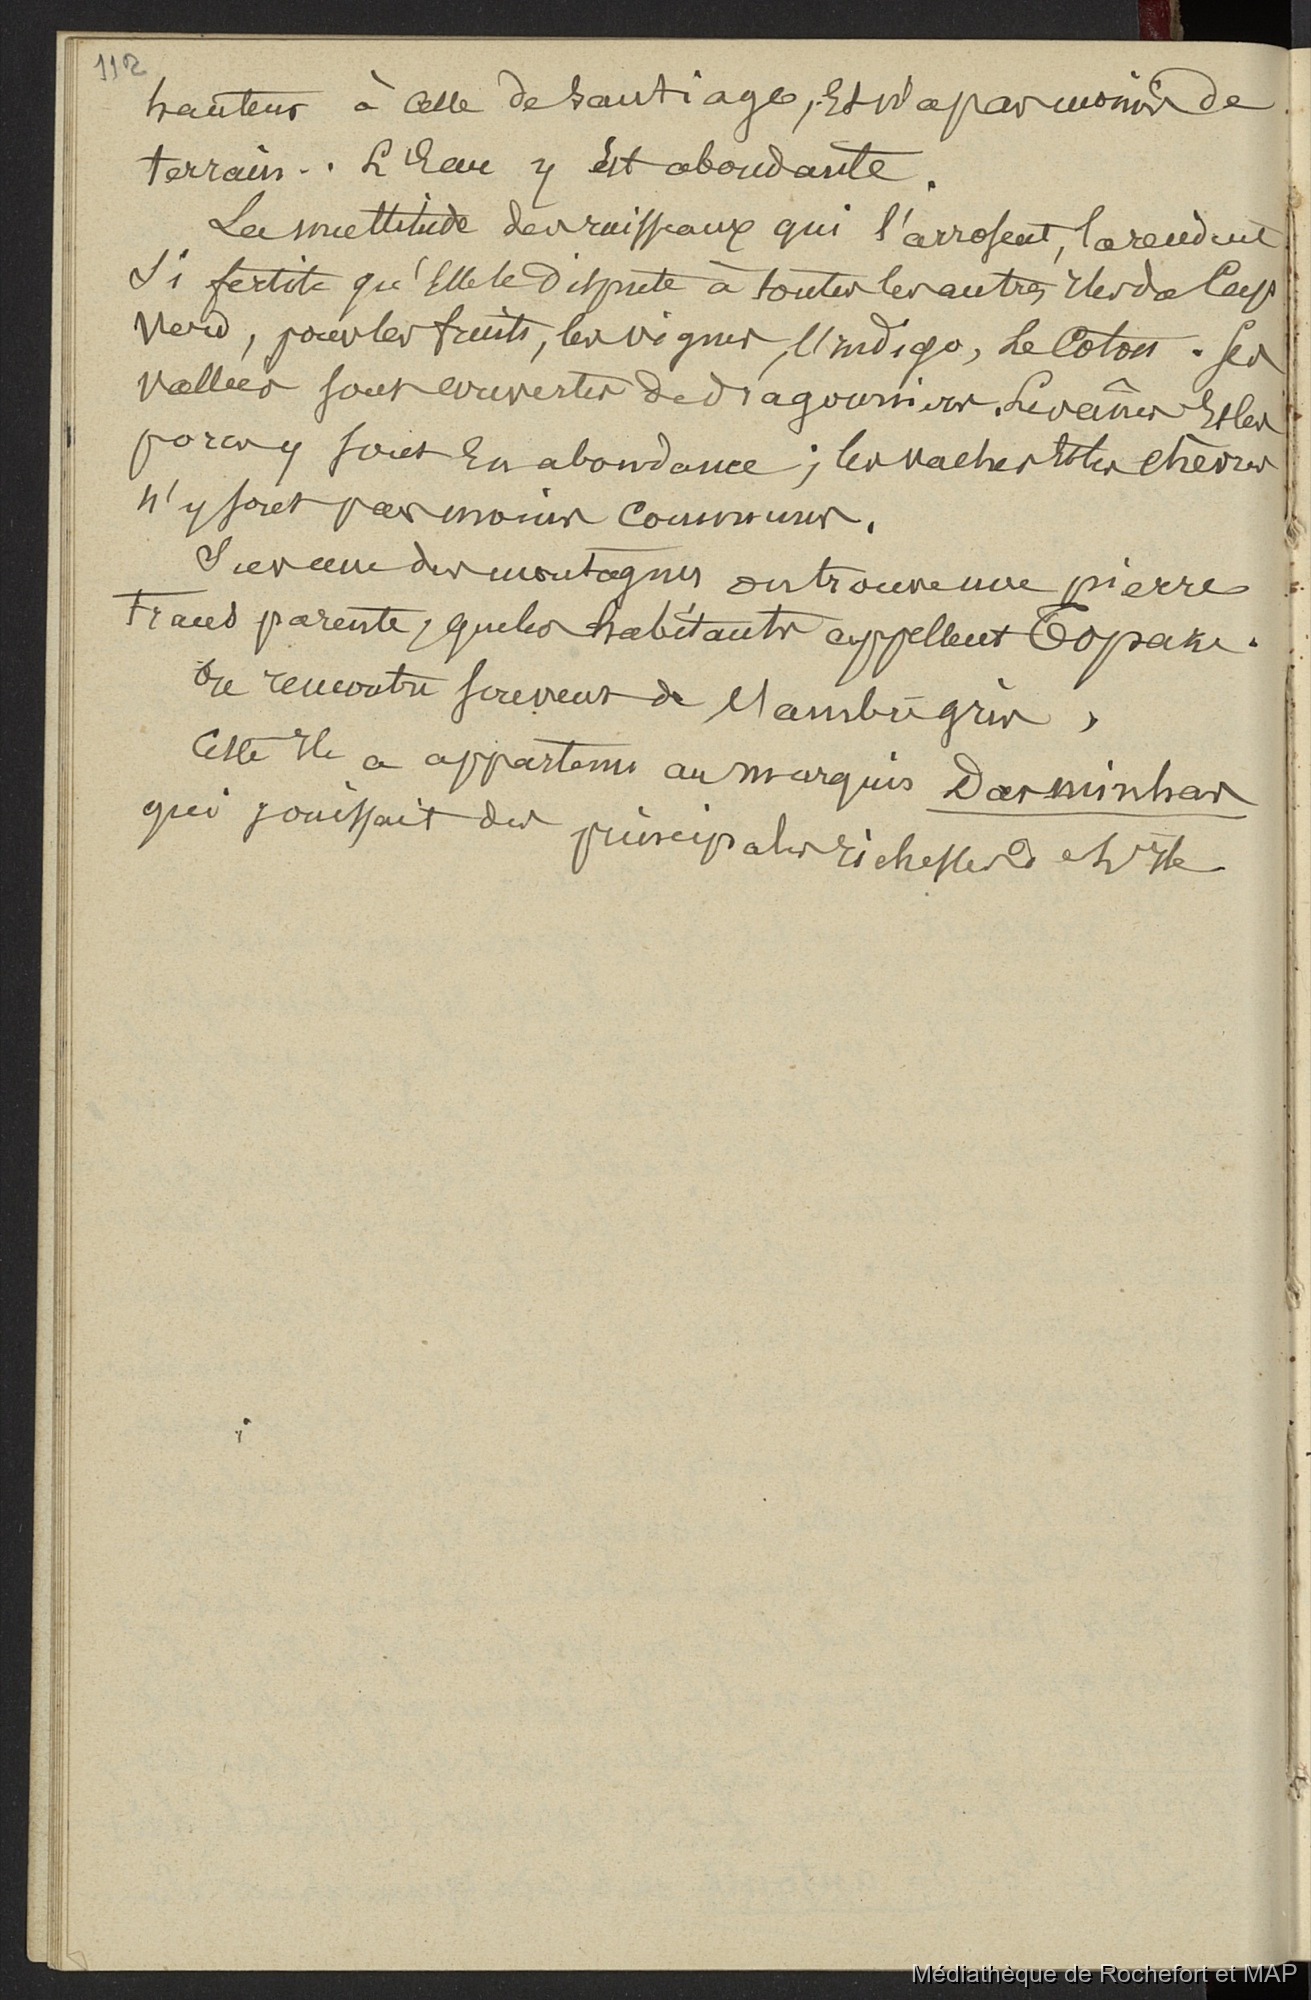 112
hauteur à celle de Santiago, Et n'a pas moins de
terrain.. L'Eau y est abondante.
La multitude des ruisseaux qui l'arrosent, la rendent
Si fertile qu'Elle le dispute à toutes les autres Iles da Cap
Verd, pour les fruits, les vignes, l'Indigo, Le Coton. Ses
vallées sont couvertes de dragonniers. Les ânes Et les
porcs y sont En abondance ; les vaches Et les chèvres
n'y sont pas moins communes.
Sur une des montagnes on trouve une pierre
transparente, que les habitants appellent Topaze.
On rencontre souvent de l'ambregris,
Cette Ile a appartenu au marquis Das minhas
qui jouissait des principales richesses de l'Ile
Médiathèque de Rochefort et MAP